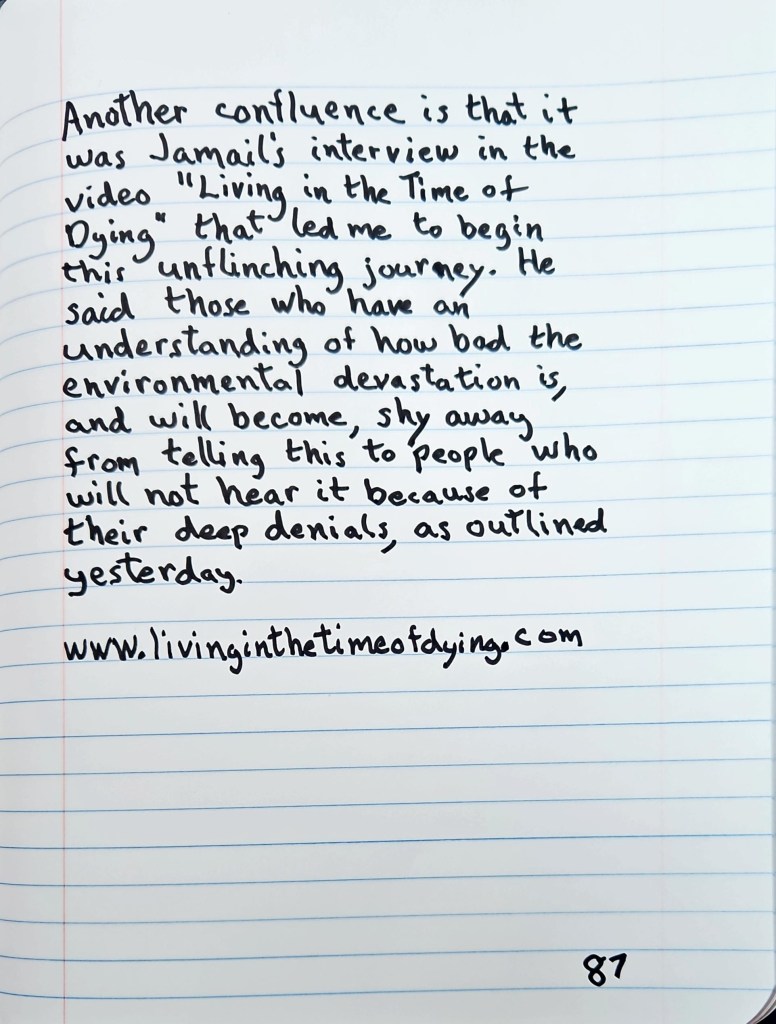 Another confluence is that it
was Jamail's interview in the
video "Living in the Time of
Dying" that led me to begin
this unflinching journey. He
said those who have an
understanding of how bad the
environmental devastation is,
and will become, shy away
from telling this to people who
will not hear it because of
their deep denials, as outlined
yesterday.
www.livinginthetimeofdying.com
87